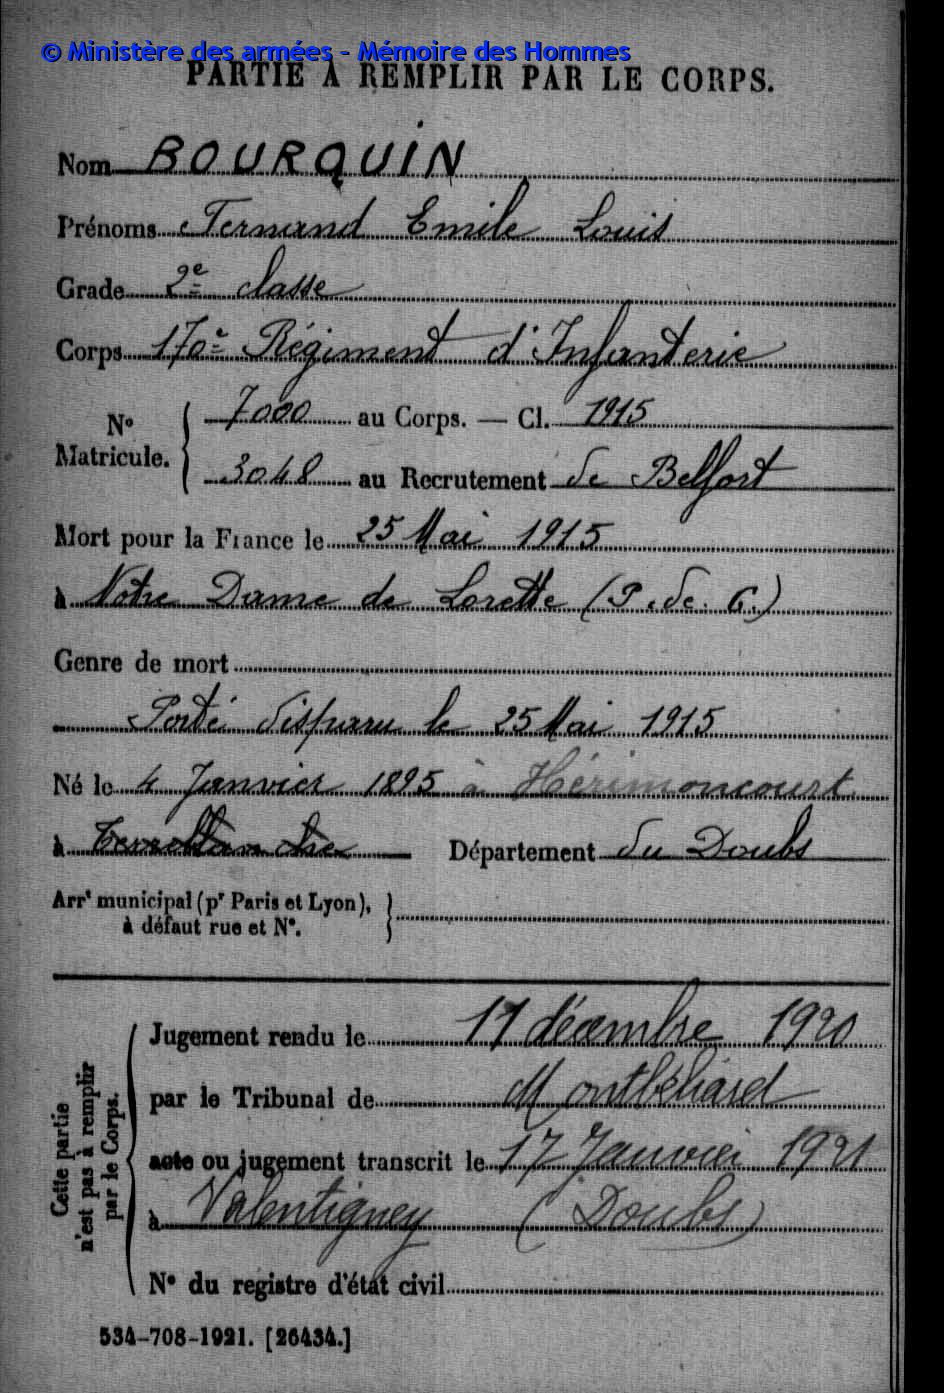 © Ministère des armées - Mémoire des Hommes
PARTIE À REMPLIR PAR LE CORPS.
Nom BOURQUIN
Prénoms Fernand Emile Louis
Grade 2e classe
Corps 170e Régiment d'Infanterie
No Matricule. { 7000 au Corps. — Cl. 1915
3048 au Recrutement de Belfort
Mort pour la France le 25 Mai 1915
à Notre Dame de Lorette (P. de. C.)
Genre de mort
Porté disparu le 25 Mai 1915
Né le 4 Janvier 1895 à Hérimoncourt
à Département du Doubs
Arrt municipal (pr Paris et Lyon), }
à défaut rue et No.
Cette partie
n'est pas à remplir
par le Corps.
Jugement rendu le 11 décembre 1920
par le Tribunal de Montbéliard
acte ou jugement transcrit le 17 Janvier 1921
à Valentigney (Doubs)
No du registre d'état civil
534-708-1921. [26434.]